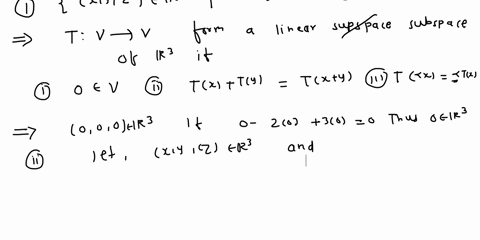 ① { (x,y,z) ∈
⇒ T: V → V form a linear subspace
of ℝ³ if
ⓘ 0 ∈ V ⓘⓘ T(x) + T(y) = T(x+y) ⓘⓘⓘ T(αx) = αT(x)
⇒ (0,0,0) ∈ ℝ³ If 0 - 2(0) + 3(0) = 0 Thus 0 ∈ ℝ³
ⓘⓘ let, (x,y,z) ∈ ℝ³ and